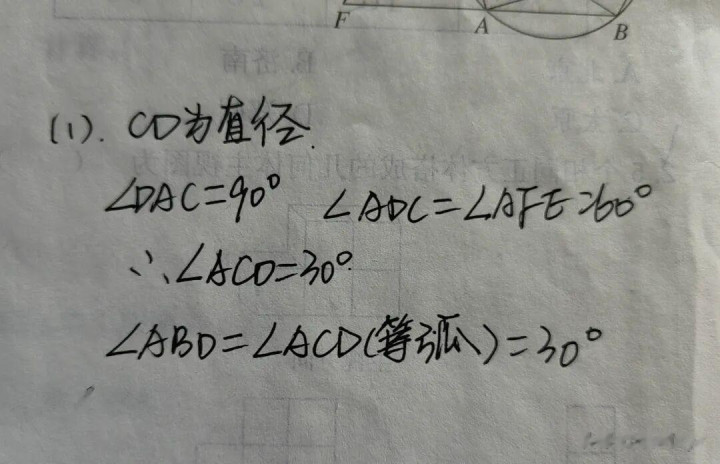 F
A
B
B. 济南
(1). CD为直径.
∠DAC=90° ∠ADC=∠AFE=60°
∴∠ACD=30°.
∠ABD=∠ACD(等弧)=30°